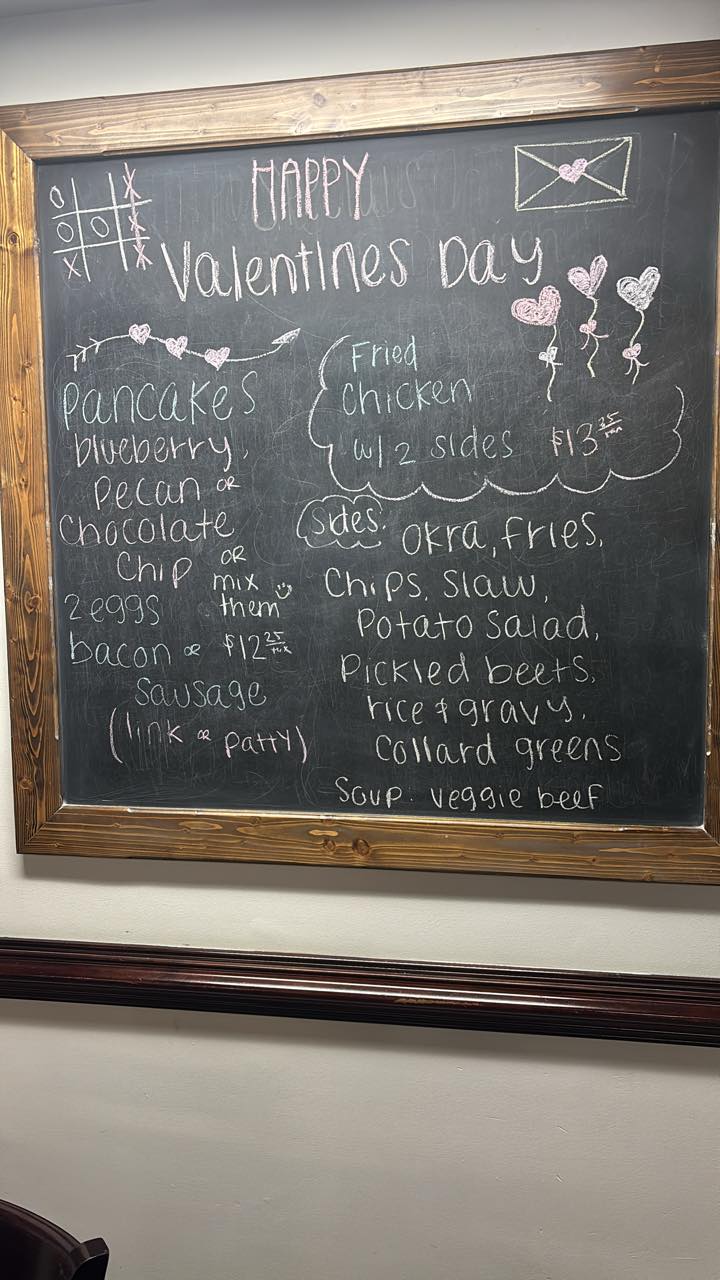 HAPPY
Valentines Day
Pancakes
blueberry,
Pecan or
Chocolate
Chip
OR
mix
them
2 eggs
bacon or
$12 25 + tax
Sausage
(link or patty)
Fried
Chicken
w/ 2 sides $13 25
Sides:
Okra, fries,
Chips, Slaw,
Potato Salad,
Pickled beets,
rice & gravy,
Collard greens
Soup: veggie beef
O X
O O X
X X